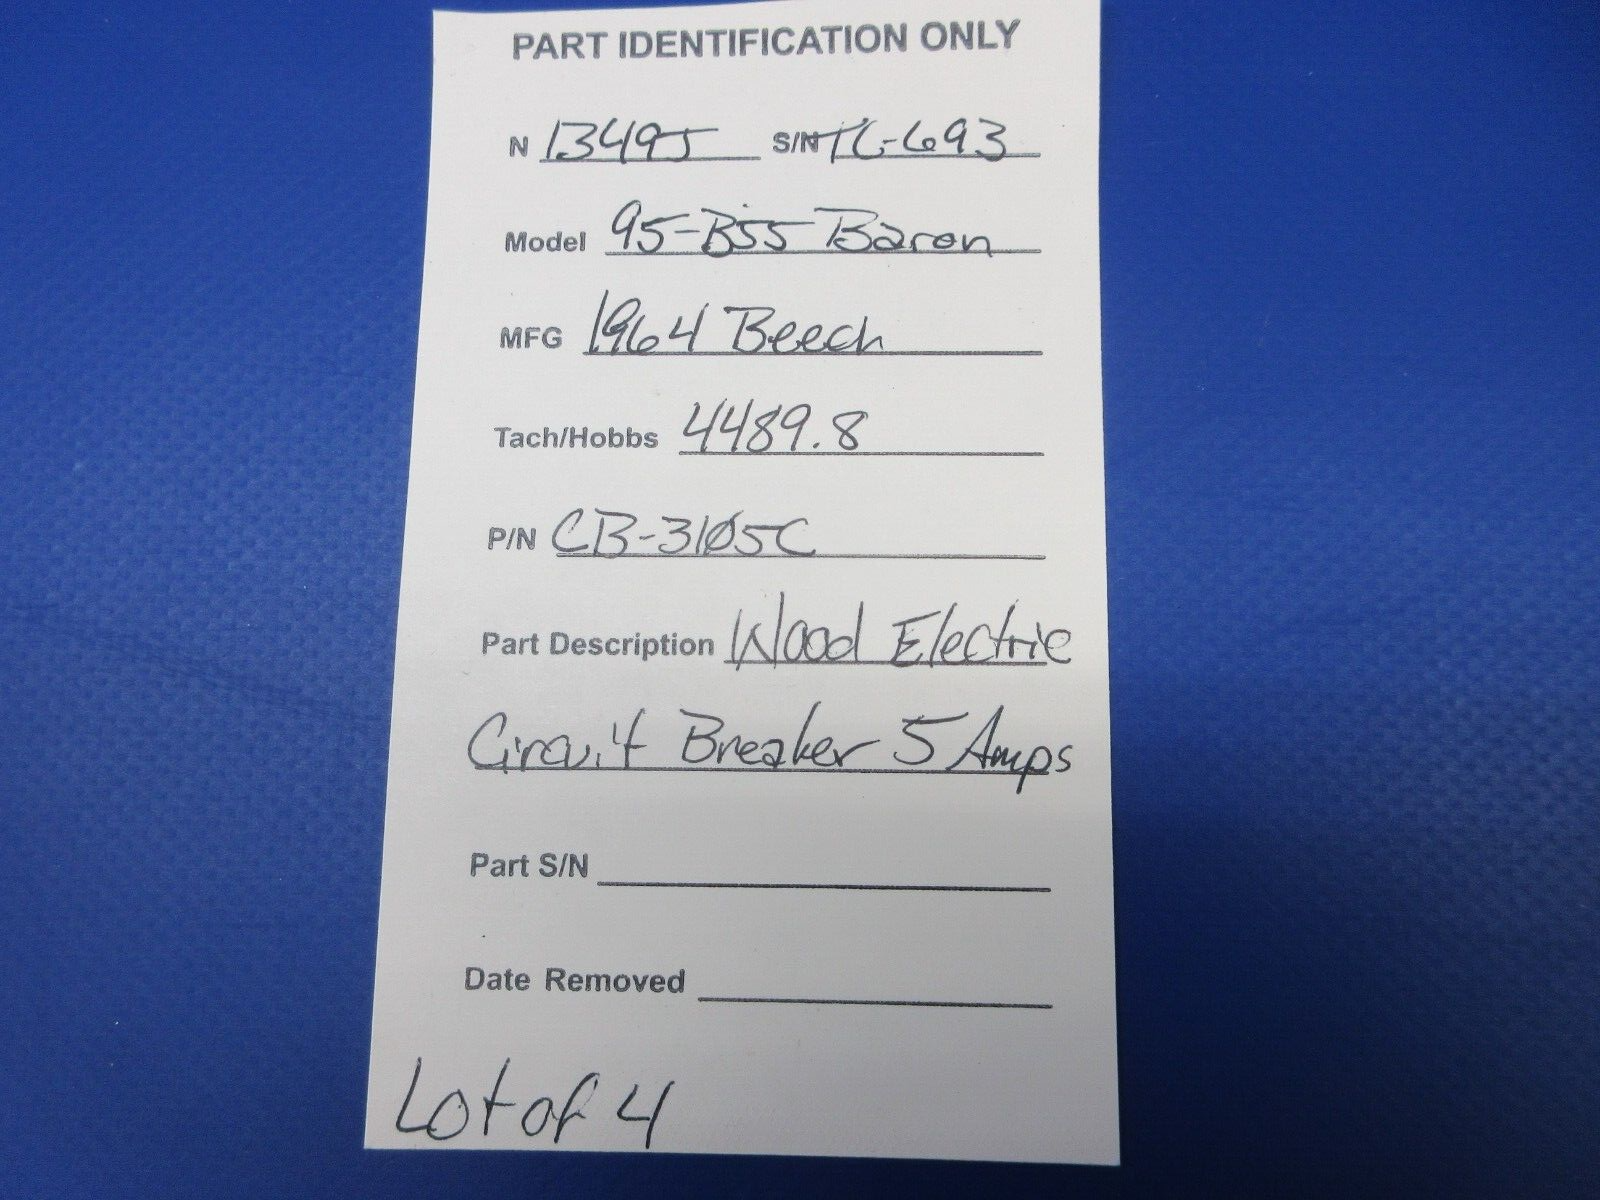 PART IDENTIFICATION ONLY
N 13495 S/N TC-693
Model 95-B55 Baron
MFG 1964 Beech
Tach/Hobbs 4489.8
P/N CB-3105C
Part Description Wood Electric
Circuit Breaker 5 Amps
Part S/N
Date Removed
Lot of 4